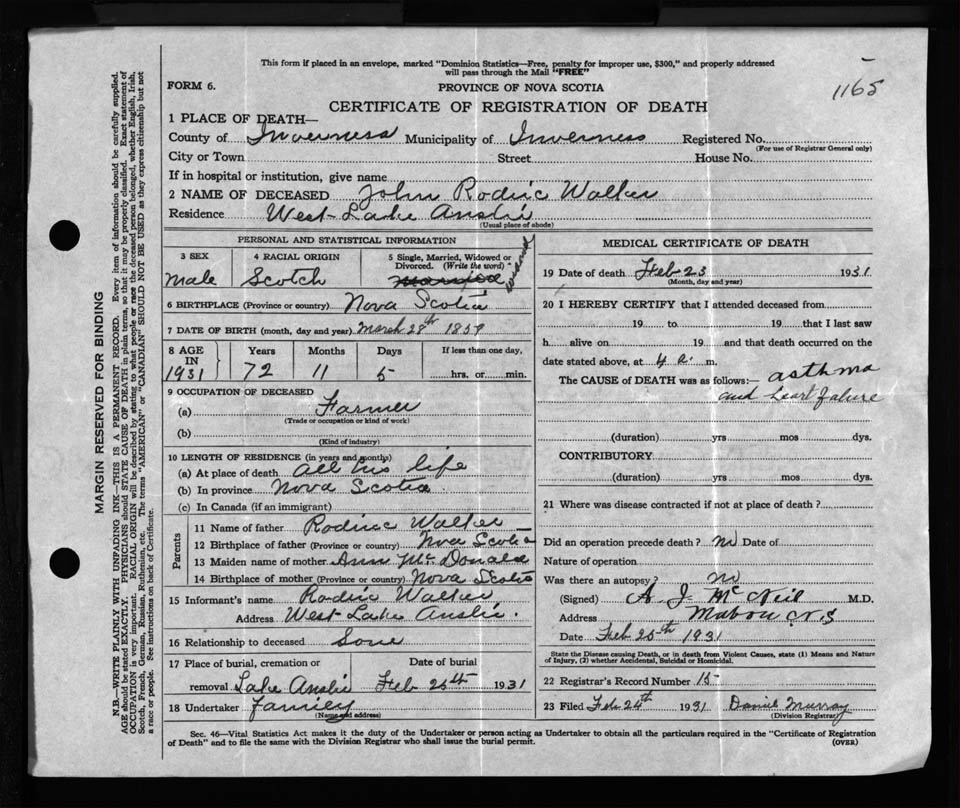 This form if placed in an envelope, marked "Dominion Statistics—Free, penalty for improper use, $300," and properly addressed
will pass through the Mail "FREE"
1165
FORM 6.
PROVINCE OF NOVA SCOTIA
CERTIFICATE OF REGISTRATION OF DEATH
1 PLACE OF DEATH—
County of Inverness Municipality of Inverness Registered No.
(For use of Registrar General only)
City or Town Street House No.
If in hospital or institution, give name
2 NAME OF DECEASED John Rodric Walker
Residence West Lake Anslie
(Usual place of abode)
PERSONAL AND STATISTICAL INFORMATION
3 SEX 4 RACIAL ORIGIN 5 Single, Married, Widowed or Divorced. (Write the word)
male Scotch Married Widowed
6 BIRTHPLACE (Province or country) Nova Scotia
7 DATE OF BIRTH (month, day and year) March 28th 1859
8 AGE IN Years Months Days If less than one day,
1931 72 11 5 hrs. or min.
9 OCCUPATION OF DECEASED
(a) Farmer
(Trade or occupation or kind of work)
(b)
(Kind of industry)
10 LENGTH OF RESIDENCE (in years and months)
(a) At place of death all his life
(b) In province Nova Scotia.
(c) In Canada (if an immigrant)
Parents
11 Name of father Rodric Walker
12 Birthplace of father (Province or country) Nova Scotia
13 Maiden name of mother Ann McDonald
14 Birthplace of mother (Province or country) Nova Scotia
15 Informant's name Rodric Walker
Address West Lake Anslie.
16 Relationship to deceased Sone
17 Place of burial, cremation or Date of burial
removal Lake Anslie Feb 25th 1931
18 Undertaker family
(Name and address)
MEDICAL CERTIFICATE OF DEATH
19 Date of death Feb 23 1931
(Month, day and year)
20 I HEREBY CERTIFY that I attended deceased from
19 to 19 that I last saw
h alive on 19 and that death occurred on the
date stated above, at 4 a. m.
The CAUSE OF DEATH was as follows:— asthma
and heart falure
(duration) yrs mos dys.
CONTRIBUTORY
(duration) yrs mos dys.
21 Where was disease contracted if not at place of death?
Did an operation precede death? no Date of
Nature of operation
Was there an autopsy? no
(Signed) A J McNeil M.D.
Address Mabou C.B. N.S
Date Feb 25th 1931
State the Disease causing Death, or in death from Violent Causes, state (1) Means and Nature
of Injury, (2) whether Accidental, Suicidal or Homicidal.
22 Registrar's Record Number 15
23 Filed Feb 24th 1931 Daniel Murray
(Division Registrar)
Sec. 46—Vital Statistics Act makes it the duty of the Undertaker or person acting as Undertaker to obtain all the particulars required in the "Certificate of Registration
of Death" and to file the same with the Division Registrar who shall issue the burial permit. (OVER)
MARGIN RESERVED FOR BINDING
N.B.—WRITE PLAINLY WITH UNFADING INK—THIS IS A PERMANENT RECORD. Every item of information should be carefully supplied.
AGE should be stated EXACTLY. PHYSICIANS should STATE CAUSE OF DEATH in plain terms, so that it may be properly classified. Exact statement of
OCCUPATION is very important. RACIAL ORIGIN will be described by stating to what people or race the deceased person belonged, whether English, Irish,
Scotch, French, German, Russian, Ruthenian, etc. The terms "AMERICAN" or "CANADIAN" SHOULD NOT BE USED as they express citizenship but not
a race or people. See instructions on back of Certificate.